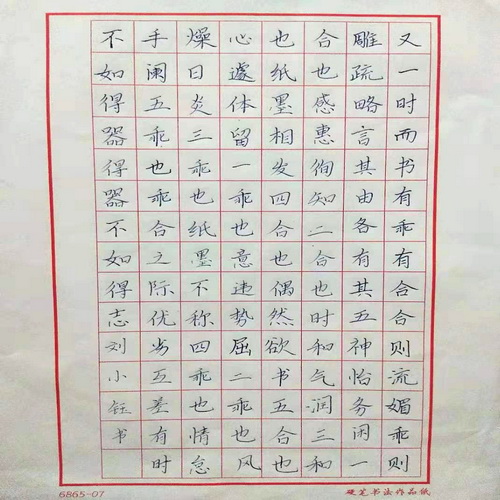 又一时而书有乖有合合则流媚乖则
雕疏略言其由各有其五神怡务闲一
合也感惠徇知二合也时和气润三和
也纸墨相发四合也偶然欲书五合也
心遽体留一乖也意违势屈二乖也风
燥日炎三乖也纸墨不称四乖也情怠
手阑五乖也乖合之际优劣互差有时
不如得器得器不如得志刘小钰书
6865-07
硬笔书法作品纸